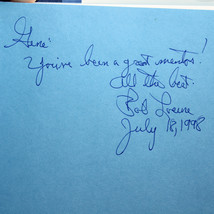 Gene!
You've been a great mentor!
All the best.
Bob
July 18, 1998